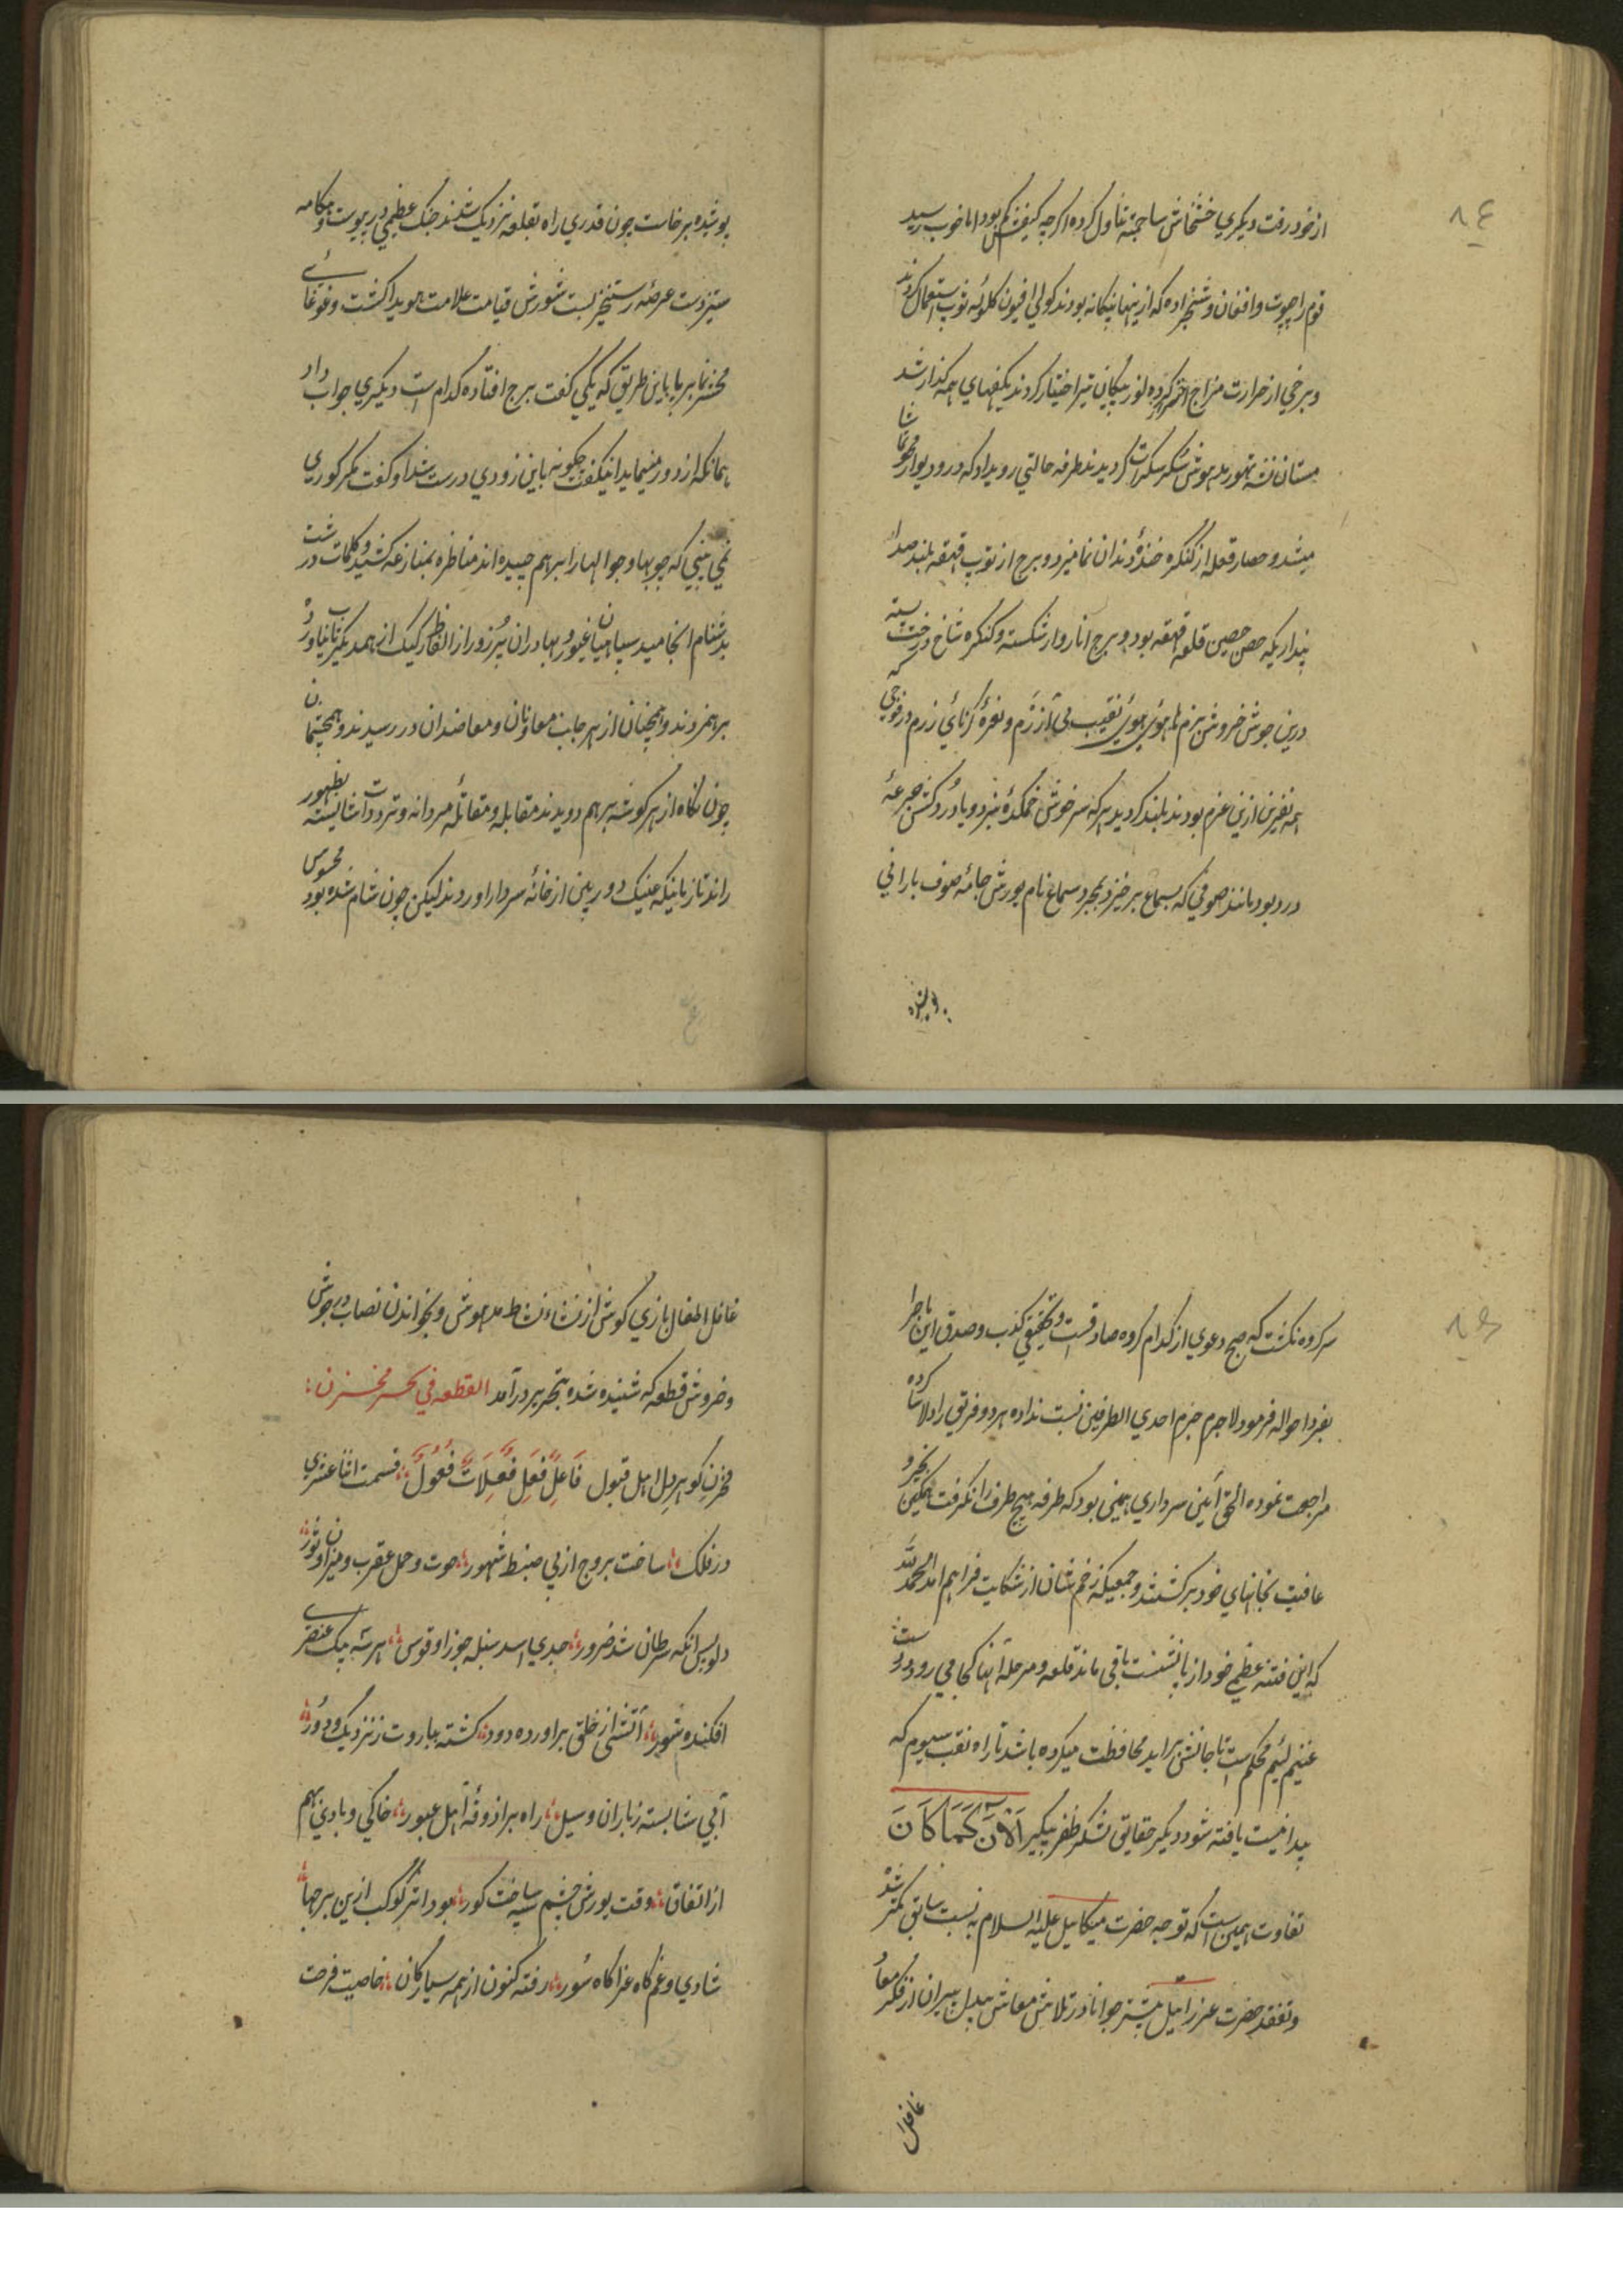 ۸٤
از خود رفت دیکری خشخاش ساجته تناول کرده اکرچه کیفش کم بود اما خوب رسید
قوم راجپوت و افغان و شیخزاده که ازینها بیکانه بودند کولی افیون کلوله توپ استعمال کردند
و برخی از حرارت مزاج پیکان تیر اختیار کردند کیفهای همه کذار شد
مستان نشه تهور مدهوش سکر سکرات کردیدند طرفه حالتی رویداد که در و دیوار محو تماشا
میشد و حصار قلعه از کنکره خندهٔ دندان نما میزد و برج از توپ قهقهه بلند صدا
پنداریکه حصن حصین قلعه قهقهه بود و برج انار وار شکسته و کنکره شاخ درخت پسته
درین جوش خروش بزم هاهوی هوی نقیب بی آزرم و نعرهٔ کرنای رزم در فوجی که
همه نفرین ازین عزم بودند بلند کردید هر که سرخوش خمکدهٔ نبرد و باده کش جرعهٔ
درد بود مانند صوفی که بسماع برخیزد بمجرد سماع نام یورش جامهٔ صوف بارانی
پوشیده
پوشیده برخاست چون قدری راه بقلعه نزدیک شدند جنک عظیمی در پیوست و هنکامه
ستیز دست عرصهٔ رستخیز بست شورش قیامت علامت هویدا کشت و غوغائی
محشر نما برپا باین طریق که یکی کفت برج افتاده کدام است دیکری جواب داد
همانکه از دور مینماید انیکفت چکونه باین زودی درست شد او کفت مکر کوری
نمی بینی که چوبها و جوالها را برهم چیده اند مناظره بمنازعه کشید و کلمات درشت
بدشنام انجامید سپاهیان غیور و بهادران پرزور از الفاظ رکیک از همدیکر تاب نیاورد
برهم زدند و همچنان از هر جانب معاونان و معاضدان در رسیدند و همچشمان
چون نکاه از هر کوشه برهم دویدند مقابله و مقاتلهٔ مردانه و ترددات شایسته بظهور
راند تا زمانیکه عینک دوربین از خانهٔ سردار آوردند لیکن چون شام شده بود محسوس
۸۵
سرکرده نکشت که صبح دعوی از کدام کروه صادقست و تحقیق کذب و صدق این ماجرا
بفردا حواله فرمود لاجرم جزم احدی الطرفین نسبت نداده هر دو فریق را دلاسا کرده
مراجعت نموده الحق آیین سرداری همینی بود که طرفه هیچ طرف را نکرفت همکین بخیر و
عافیت بخانهای خود برکشتند و جمعیکه زخم شان از شکایت فراهم آمد الحمد لله
که این فتنه عظیم خود از پا نشست باقی ماند قلعه و مرحله آنها کجا می رود درست
غنیم لئیم محکم است تا جانش براید محافظت میکرده باشد تا راه نقب سیوم که
پیدا نیست یافته شود دیکر حقایق لشکر ظفر پیکر اَلْآنَ کَمَا کَانَ
تفاوت همین است که توجه حضرت میکائیل علیه السلام به نسبت سابق کمتر شد
و تفقد حضرت عزرائیل بیشتر جوانان در تلاش معاش بیدل پیران از فکر معاد
غافل
غافل اطفال بازی کوش از نشاء نشاط مدهوش و بخواندن نصاب در جوش
و خروش قطعه که شنیده شده بتحریر درآمد القطعه فی بحر مخزن
مخزن کوهر دل اهل قبول فَاعِلُ فِعَلُ فَعِلَاتُ فُعُول قسمت اثنا عشری
در فلک ساخت بروج از پی ضبط شهور حوت و حمل عقرب و میزان و ثور
دلو پس آنکه سرطان شد ضرور جدی اسد سنبله جوزا و قوس هر سه بیک عنصری
افکنده شور آتشی از خلق برآورده دود کشته بباروت ز نزدیک و دور
آبی شا بسته ز باران و سیل راه بر آذوقهٔ اهل عبور خاکی و بادی بهم
از اتفاق وقت یورش چشم سیه ساخت کور بود اثر کوکب ازین برجها
شادی و غم کاه عزا کاه سور رفته کنون از همه سیارکان خاصیت فرحت